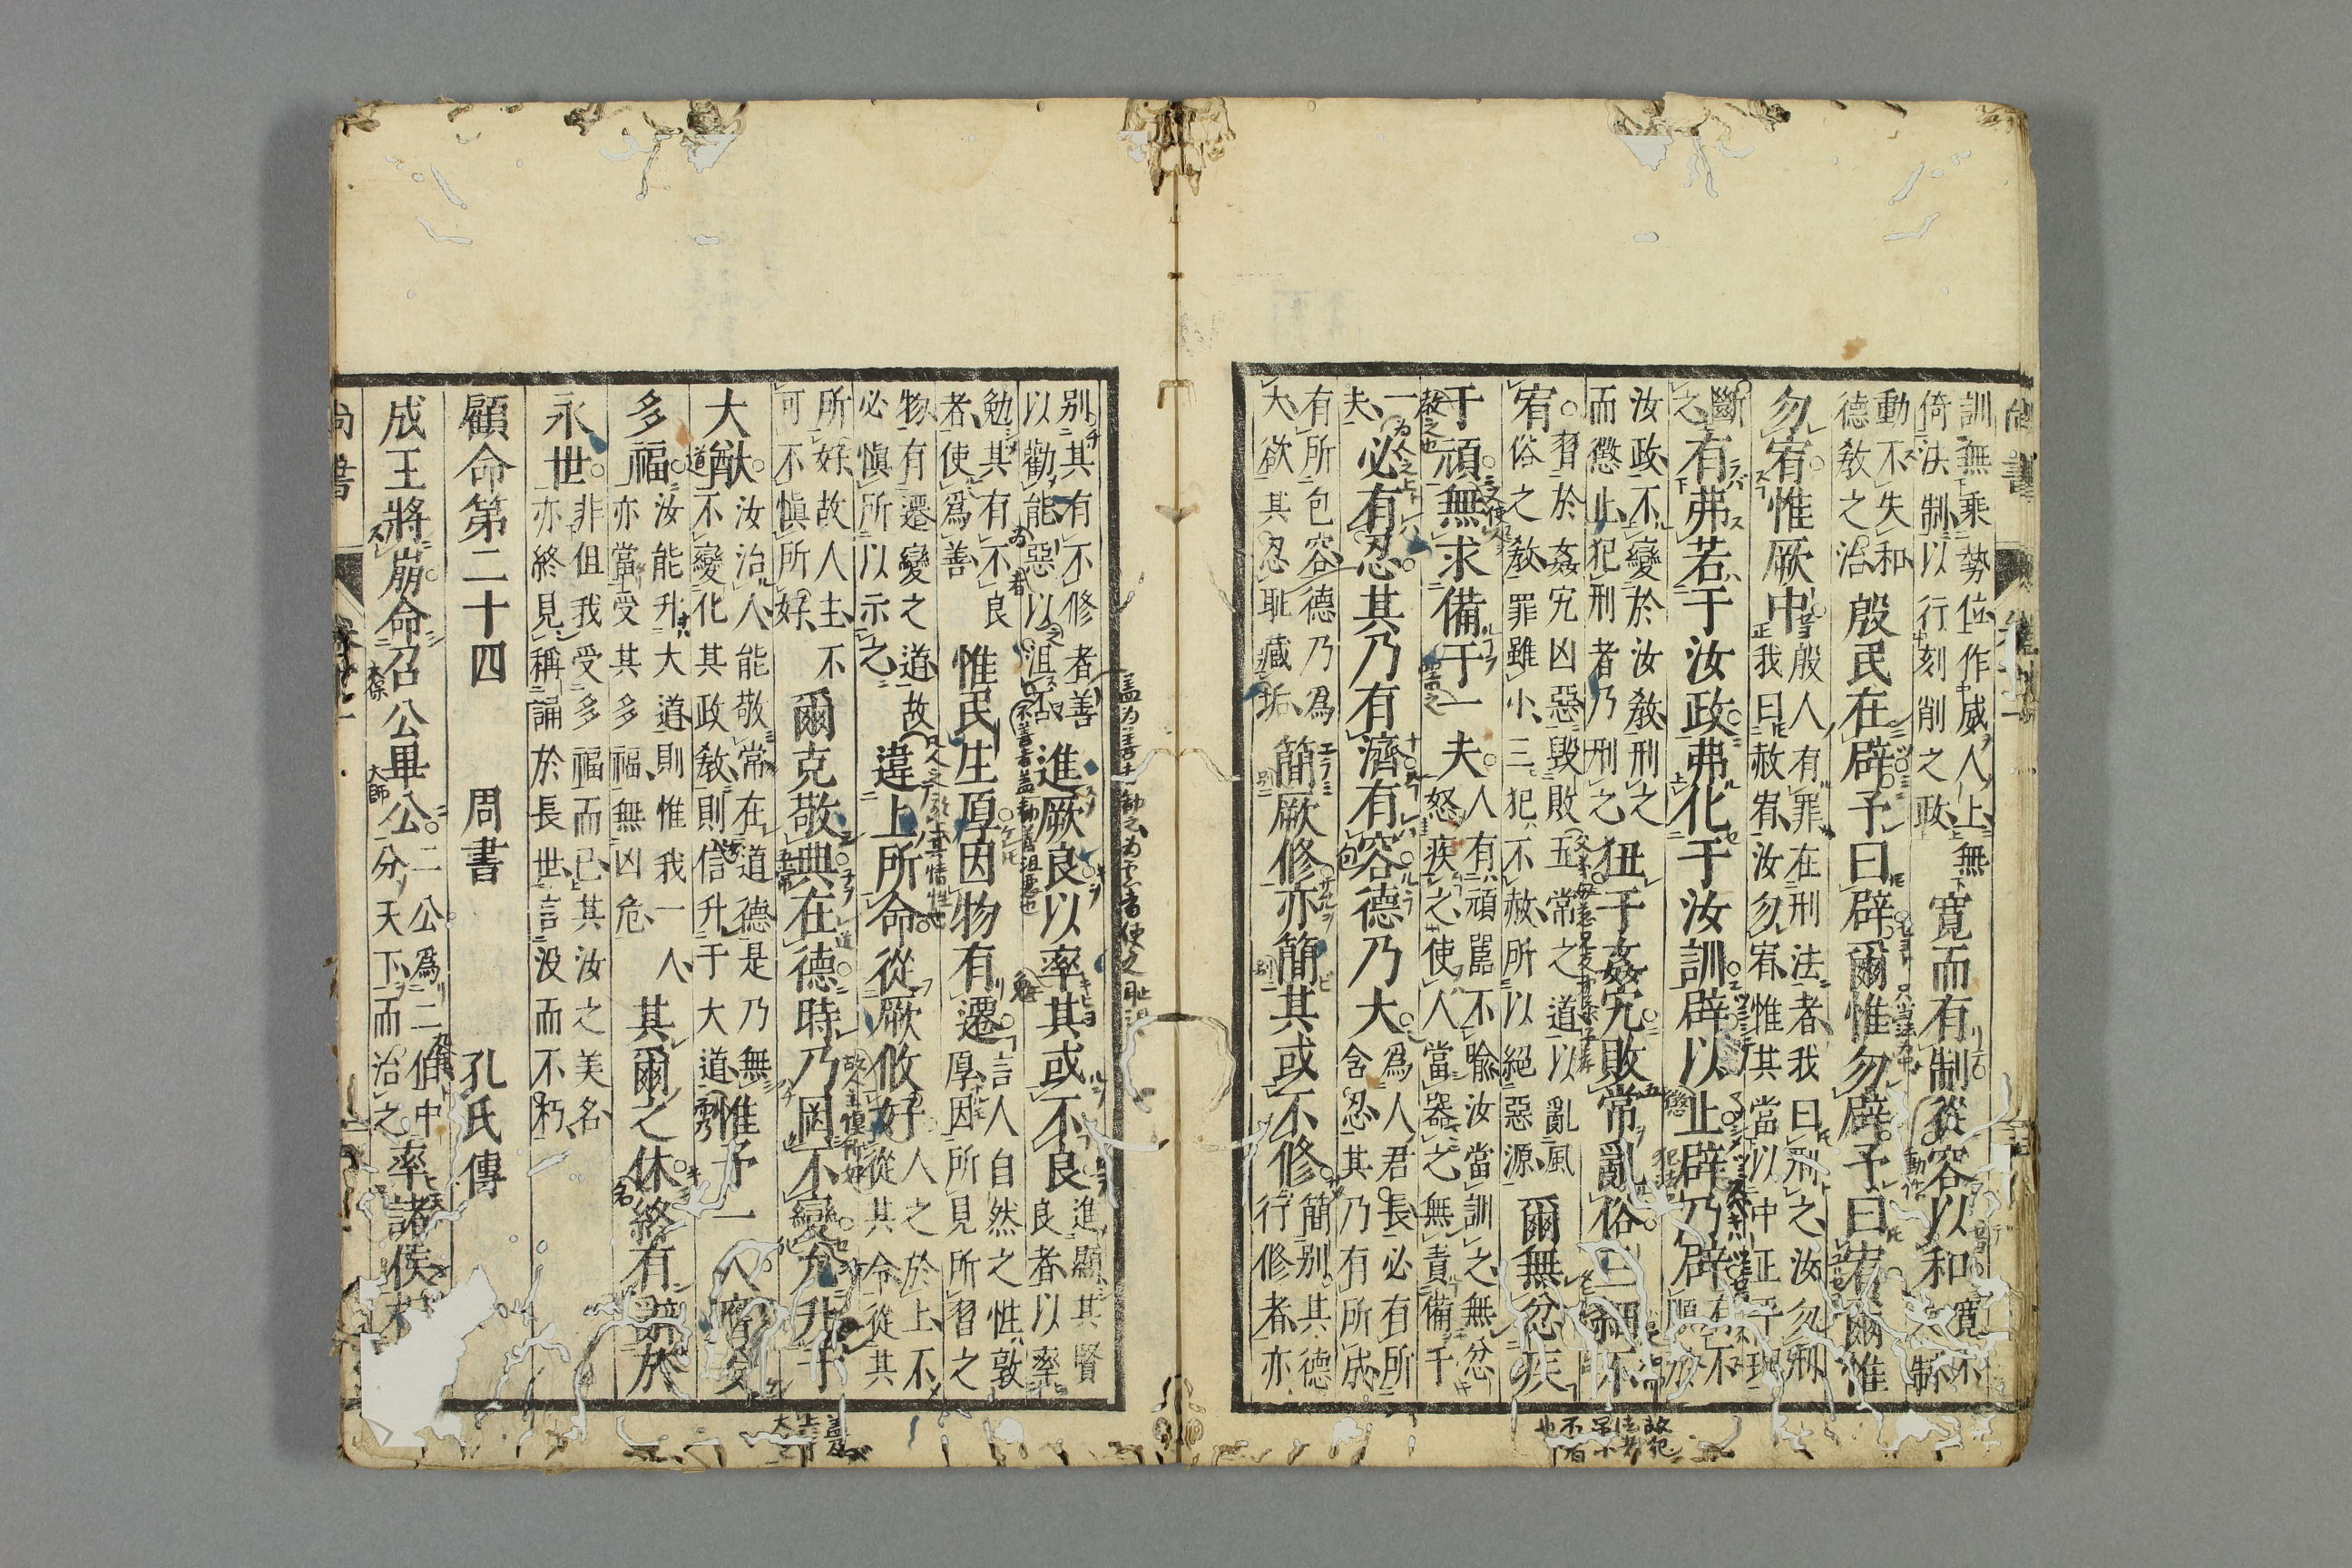 訓無乘勢位作威人上無倚法制以行刻削之政寬而有制從容以和寬不失制
動不失和德敎之治殷民在辟予曰辟爾惟勿辟予曰宥爾惟
勿宥惟厥中殷人有罪在刑法者我曰刑之汝勿刑正我曰赦宥汝勿宥惟其當以中正平理
斷之有弗若于汝政弗化于汝訓辟以止辟乃辟有不順於
汝政不變於汝敎刑之而懲止犯刑者乃刑之狃于姦宄敗常亂俗三細不
宥習於姦宄凶惡毀敗五常之道以亂風俗之敎罪雖小三犯不赦所以絕惡源爾無忿疾
于頑無求備于一夫人有頑嚚不喩汝當訓之無忿怒疾之使人當器之無責備于
一夫必有忍其乃有濟有容德乃大爲人君長必有所含忍其乃有所成
有所包容德乃爲大欲其忍恥藏垢簡厥修亦簡其或不修簡別其德行修者亦
別其有不修者善以勸能惡以沮否進厥良以率其或不良進顯其賢良者以率
勉其有不良者使爲善惟民生厚因物有遷言人自然之性敦厚因所見所習之
物有遷變之道故必愼所以示之違上所命從厥攸好人之於上不從其令從其
所好故人主不可不愼所好爾克敬典在德時乃罔不變允升于
大猷汝治人能敬常在道德是乃無不變化其政敎則信升于大道惟予一人膺受
多福汝能升大道則惟我一人亦當受其多福無凶危其爾之休終有辭於
永世非但我受多福而已其汝之美名亦終見稱誦於長世言沒而不朽
顧命第二十四 周書 孔氏傳
成王將崩命召公畢公二公爲二伯中分天下而治之率諸侯相
尚書